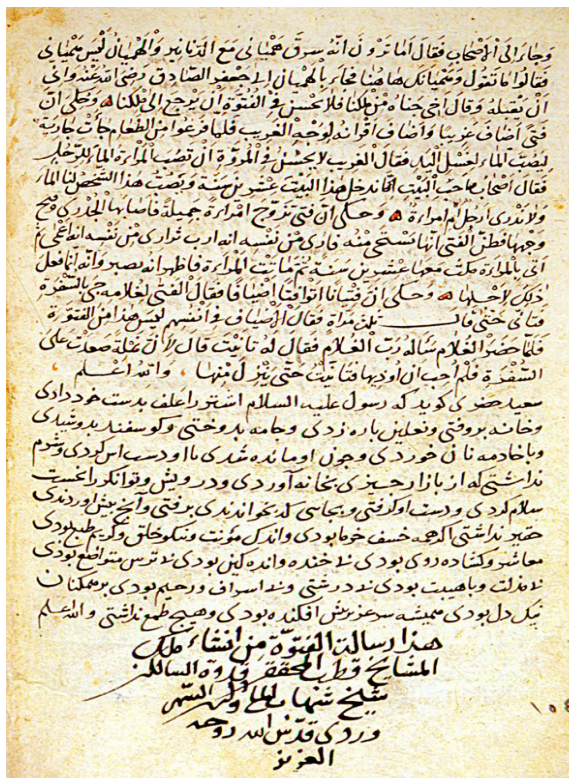 وجاء الى الاصحاب فقال اما ترون انه سرق همياني مع الدنانير والهميان ليس همياني
فقالوا ما تقول وهميانك هاهنا فجاء بالهميان الى جعفر الصادق رضى الله عنه وابى
ان يقبله وقال اخرجناه من ملكنا فلا يحسن في الفتوة ان يرجع الى ملكنا وحكى ان
فتى اضاف غريبا واضاف اقرانه لوجه الغريب فلما فرغوا من الطعام جاءت جارية
ليصب الماء لغسل اليد فقال الغريب لا يحسن في المروة ان تصب المراءة الماء للرجل
فقال اصحاب صاحب البيت انا ندخل هذا البيت عشرين سنة ويصب هذا الشخص لنا الماء
ولا ندرى ارجل ام امراءة وحكى ان فتى تزوج امراءة جميلة فاصابها الجدرى وقبح
وجهها فظن الفتى انها تستحى منه فارى من نفسه انه ارمد ثم ارى من نفسه انه اعمى ثم
اتى بالمراءة مكث معها عشرين سنة ثم ماتت المراءة فاظهر انه بصير وانه انما فعل
ذلك لاجلها وحكى ان فتيانا اتوا فتى اضيافا فقال الفتى لغلامه جئ بالسفرة
فتأنى حتى قال ثلث مرات فقال الاضياف في انفسهم ليس هذا من الفتوة
فلما حضر الغلام سأله رب الغلام فقال له تأنيت قال لان نملة صعدت على
السفرة فلم احب ان اوذيها فتأنيت حتى ينزل منها والله اعلم
سعيد خضرى كويد كه رسول عليه السلام اشتر را علف بدست خود دادى
وخانه بروفتى ونعلين باره زدى وجامه بدوختى وكوسفند بدوشيدى
وباخادمه نان خوردى وچون او مانده شدى با او دست اس كردى وشرم
نداشتى كه از بازار چيزى بخانه آوردى ودرويش وتوانكر را نخست
سلام كردى ودست او كرفتى
حقير نداشتى اكرچه خسف خرما بودى واندك مؤنت ونيكو خلق وكريم طبع بودى
معاشر وكشاده روى بودى نه خنده واندهكين بودى نه ترس متواضع بودى
نه مذلت وباهيبت بودى نه درشتى ونه اسراف ورحيم بودى بر همكنان
نيك دل بودى هميشه سر در پيش افكنده بودى وهيچ طمع نداشتى والله اعلم
هذا رسالة الفتوة من انشاء ملك
المشايخ قطب المحققين قدوة السالكين
شيخ شهاب الملة والدين السهر
وردى قدس الله روحه
العزيز
١٥٤